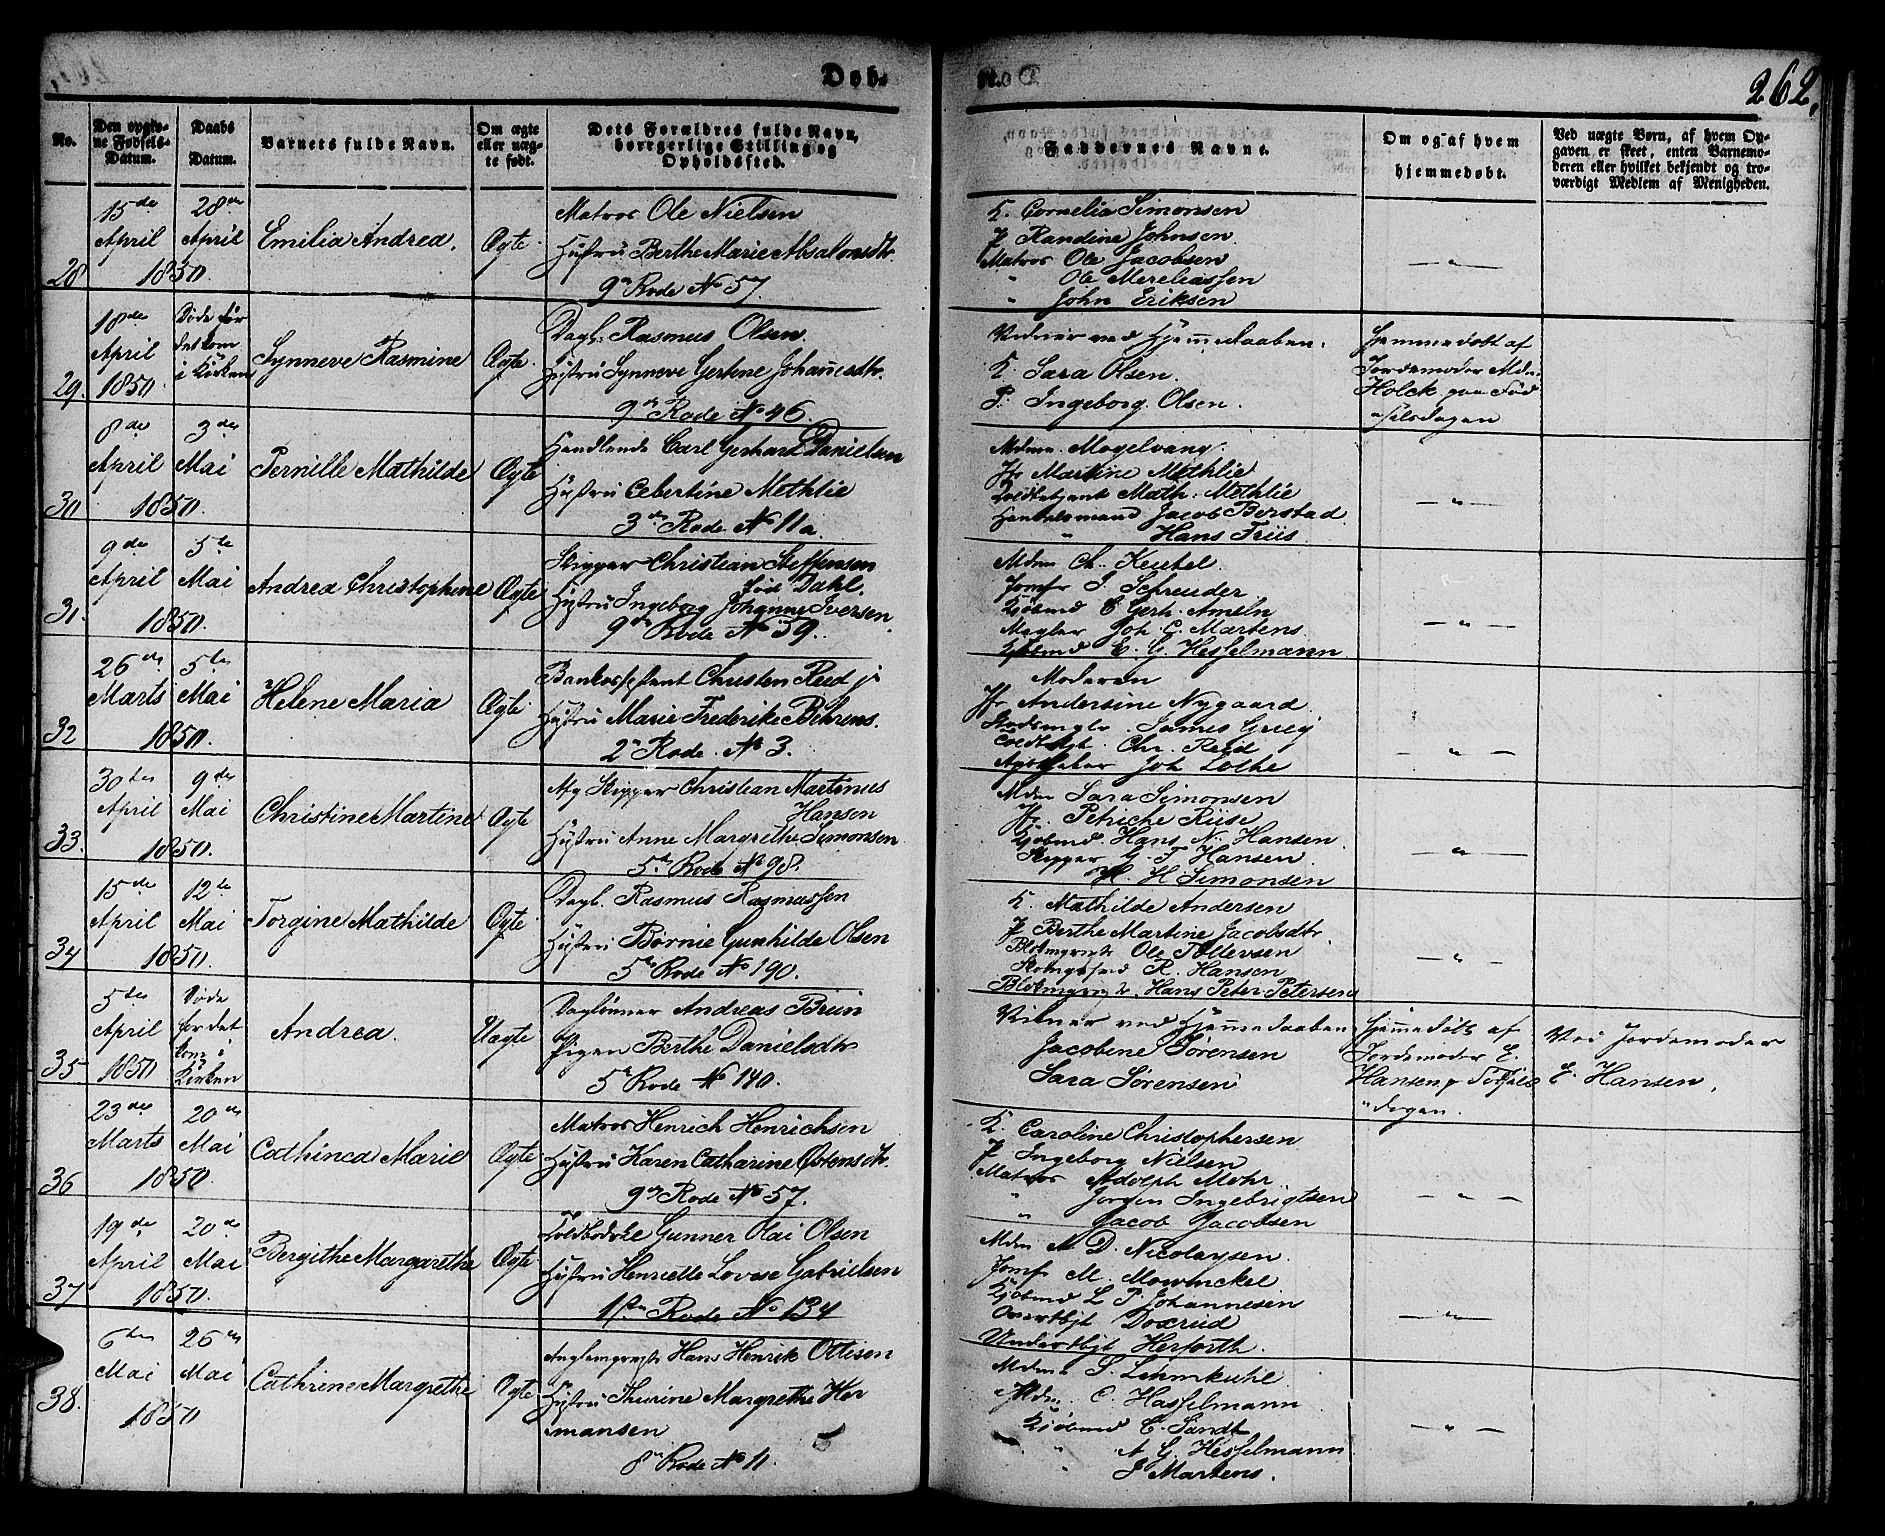 Døb-
262.
No.
Den opgiv-
ne Fødsels-
Datum.
Daabs
Datum.
Barnets fulde Navn.
Om ægte
eller uæg-
te født.
Dets Forældres fulde Navn,
borgerlige Stilling og
Opholdssted.
Faddernes Navne.
Om og af hvem
hjemmedøbt.
Ved uægte Børn, af hvem Op-
gaven er skeet, enten Barnemo-
deren eller hvilket bekjendt og tro-
værdigt Medlem af Menigheden.
28
15de
April
1850.
28de
April
Emilia Andrea.
Ægte
Matros Ole Nielsen
Hustru Berthe Marie Absalonsdtr.
9de Rode No 57.
K. Cornelia Simonsen
P Randine Johnsen
Matros Ole Jacobsen
" Ole Mereliassen
" John Eriksen
— " —
29.
18de
April
1850.
Døde før
det kom
i Kirken
Synneve Rasmine
Ægte
Dagl. Rasmus Olsen.
Hustru Synneve Gertine Johannesdtr.
9de Rode No 46.
Vidner ved Hjemmedaaben.
K. Sara Olsen.
P. Ingeborg Olsen.
Hjemmedøbt af
Jordemoder Mdm
Holck paa Fød
selsdagen
30
8de
April
1850.
3de
Mai
Pernille Mathilde
Ægte
Handlende Carl Gerhard Danielsen
Hustru Cebertine Methlie
3de Rode No 11a
Mdme. Mogelvang.
Jfr Martine Methlie
Toldbetjent Math: Methlie
Handelsmand Jacob Berstad
" Hans Friis
— " —
31.
9de
April
1850.
5te
Mai
Andrea Christophine
Ægte
Skipper Christian Steffensen
Hustru Ingeborg Johanne Iversen
fød Dahl.
9de Rode No 59.
Mdm Ch. Keubel.
Jomfr J. Schreuder.
Kjøbmd C Gerh. Ameln
Megler Joh. C. Martens.
Kjøbmd E. G. Hesselmann
— " —
32
26de
Marts
1850.
5te
Mai
Helene Maria
Ægte
Bankassistent Christen Reed jr
Hustru Marie Frederike Behrens.
2den Rode. No 3.
Moderen
Jfr Andersine Nygaard.
James Grieg
Chr. Reed
Apotheker Joh Lothe
— " —
33.
30te
April
1850.
9de
Mai
Christine Martine
Ægte
Afg Skipper Christian Martinus
Hansen
Hustru Anne Margrethe Simonsen
5te Rode No 98.
Mdm Sara Simonsen
Jfr. Petriche Riise
Kjøbmd. Hans N. Hansen
Skipper G. T Hansen.
" H. H Simonsen
— " —
34
15de
April
1850.
12te
Mai
Torgine Mathilde
Ægte
Dagl. Rasmus Rasmussen
Hustru Børnie Gunhilde Olsen
5te Rode No 190.
K. Mathilde Andersen
P Berthe Martine Jacobsdtr.
Ole Tollevsen
R. Hansen
Hans Peter Petersen
— " —
35
5te
April
1850
Døde
før det
kom i
Kirken
Andrea.
Uægte
Daglønner Andreas Brun
og
Pigen Berthe Danielsdtr
5te Rode No 140.
Vidner ved Hjemmedaaben
Jacobine Sørensen
Sara Sørensen
Hjemmedøbt af
Jordemoder E.
Hansen
dagen.
Ved Jordemoder
E. Hansen.
36
23de
Marts
1850.
20de
Mai
Cathinca Marie
Ægte
Matros Henrich Henrichsen
Hustru Karen Catharine Østensdtr.
9de Rode No 57.
K. Caroline Christophersen
P Ingeborg Nielsen
Matros Adolph Mohr.
" Jørgen Ingebrigtsen
" Jacob Jacobsen
— " —
37
19de
April
1850.
20de
Mai
Bergithe Margarethe
Ægte
Gunner Olai Olsen
Hustru Henriette Lovise Gabrielsen
1ste Rode No 134
Mdm A D. Nicolaysen.
Jomfr M. Mowinckel
Kjøbmd L P. Johannesen
Overtbjt Doxrud
Undertbjt Herforth.
— " —
38.
6te
Mai
1850
26de
Mai
Cathrine Margrethe
Ægte
Hans Henrik Ottesen
Hustru Thurine Margrethe Her
mansen
8de Rode No 11.
Mdme S. Lehmkuhl
Mdm. C. Hasselmann
Kjøbmd C. Sandt
" A G. Hesselmann
" J Martens.
— " —